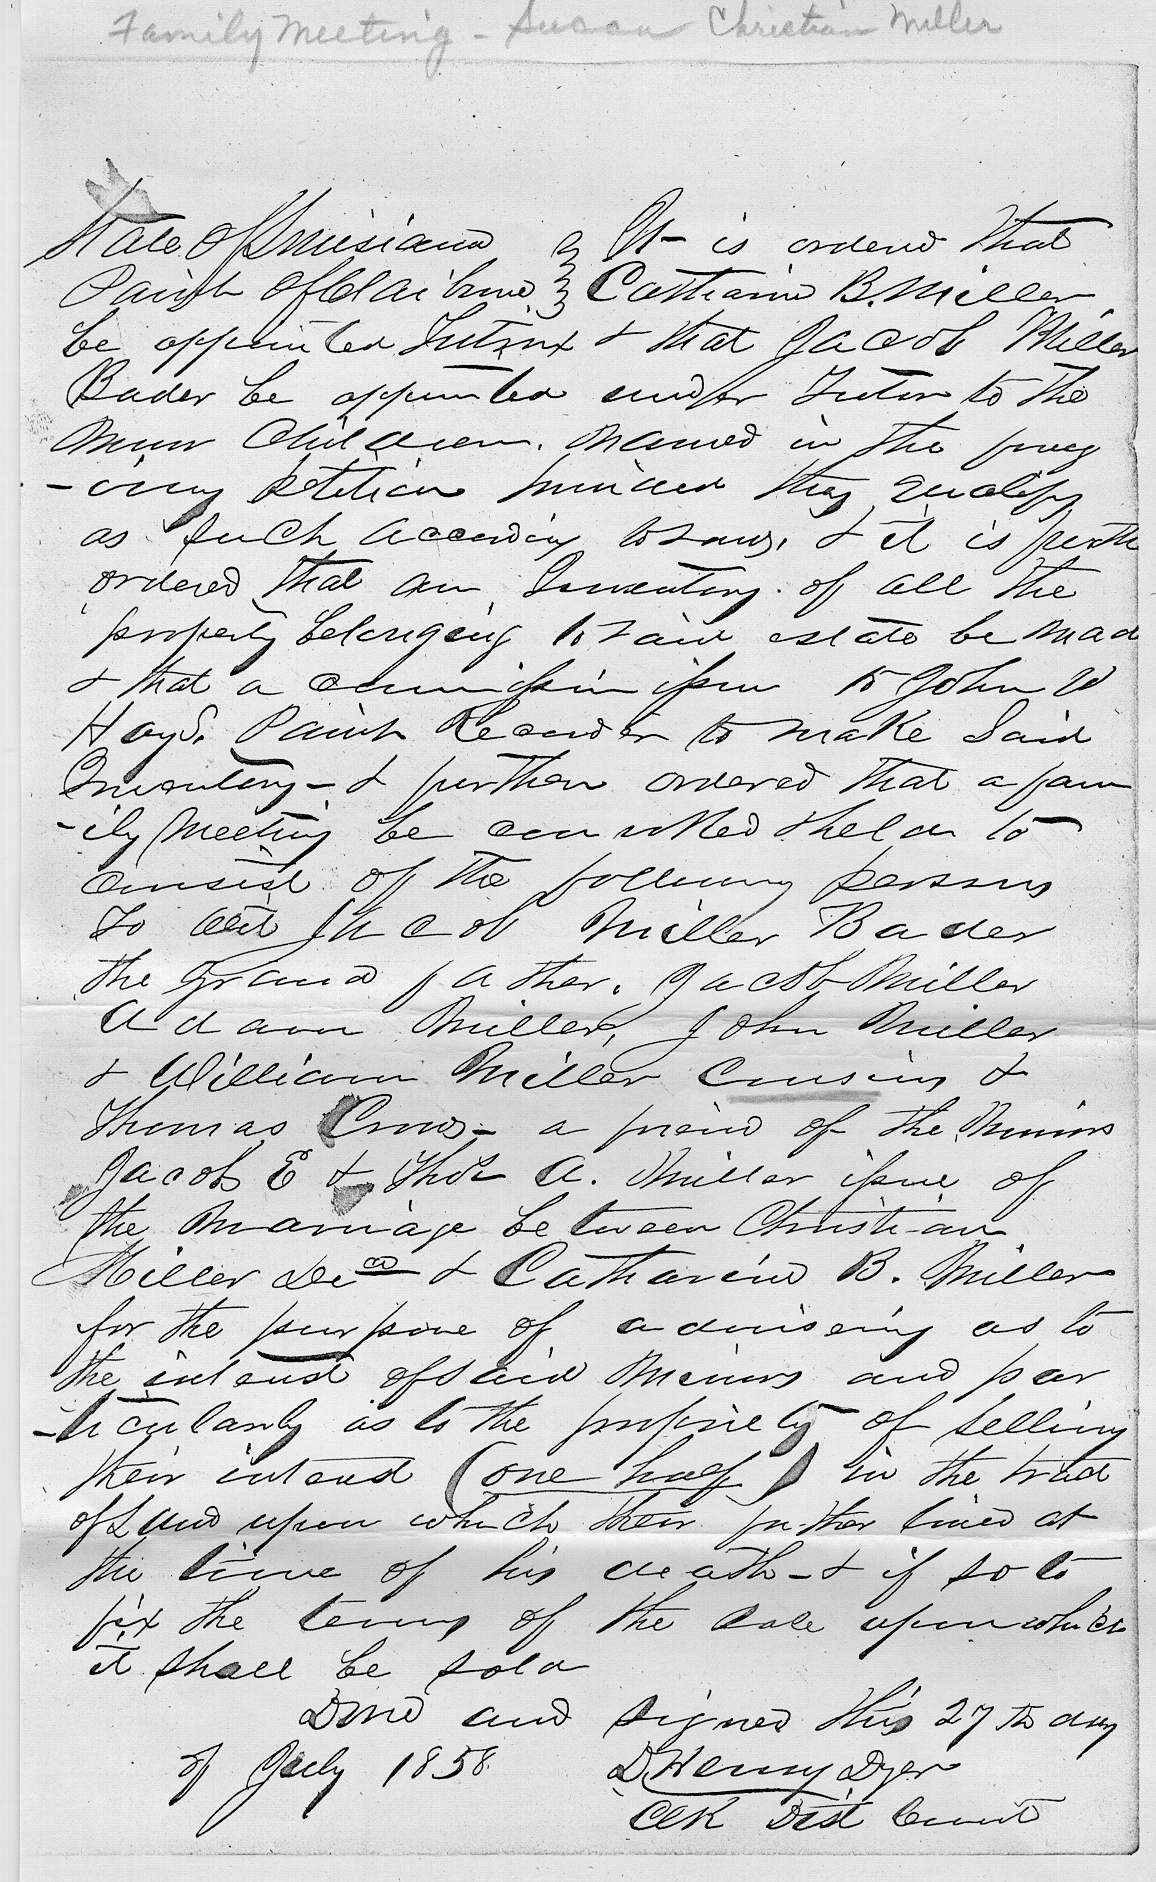 Family Meeting - Susan Christian Miller
State of Louisiana } It is ordered that
Parish of Claiborne } Catharine B. Miller
be appointed Tutrix & that Jacob Miller
Bader be appointed under Tutor to the
Minor Children. Named in the foreg
-oing petition provided they qualify
as such according to Law, & it is furth
ordered that an Inventory of all the
property belonging to said estate be mad
& that a commission issue to John W
Hays, Parish Recorder to make Said
Inventory - & further ordered that a fam
-ily Meeting be convoked & held to
consist of the following persons
To Wit Jacob Miller Bader
the Grand father, Jacob Miller
Adam Miller, John Miller
& William Miller Cousins &
Thomas Crow - a friend of the Minors
Jacob E & Thos A. Miller issue of
the Marriage between Christian
Miller Decd & Catharine B. Miller
for the purpose of adviseing as to
the interest of said Minors and par
-ticularly as to the propriety of selling
their interest (one half) in the tract
of Land upon which their father lived at
the time of his death - & if so to
fix the terms of the sale upon which
it shall be sold
Done and signed this 27th day
of July 1858 D. Henry Dyer
Clk Dist Court